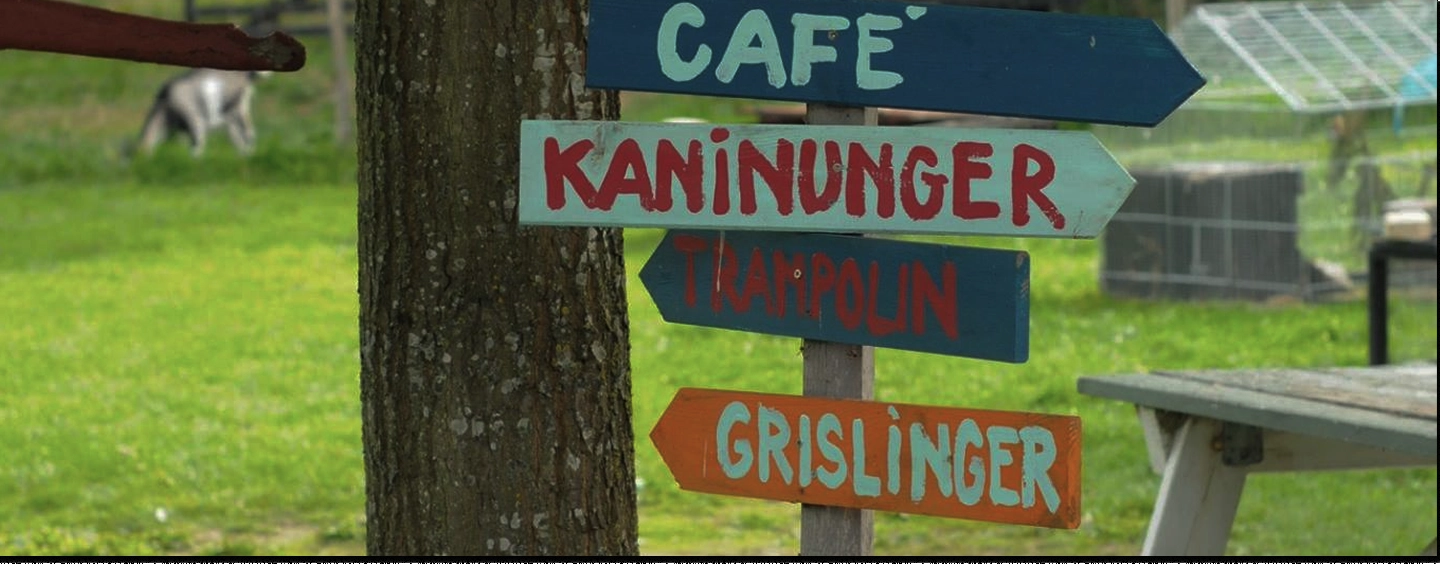 CAFÉ
KANiNUNGER
TRAMPOLIN
GRISLiNGER